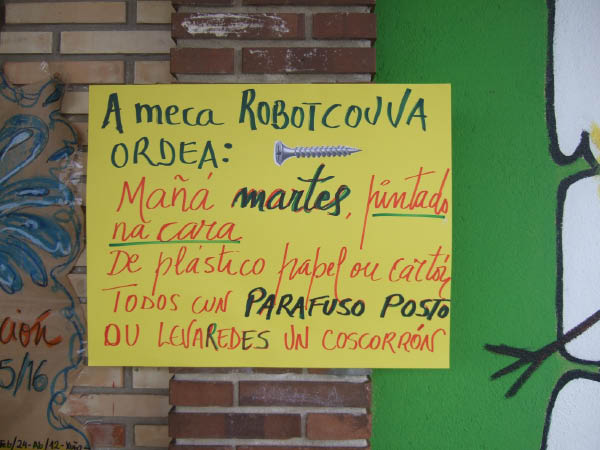 A meca ROBOTCOUVA
ORDEA:
Mañá martes, pintado
na cara
De plástico papel ou cartón
TODOS CUN PARAFUSO POSTO
OU LEVAREDES UN COSCORRÓN
ción
5/16